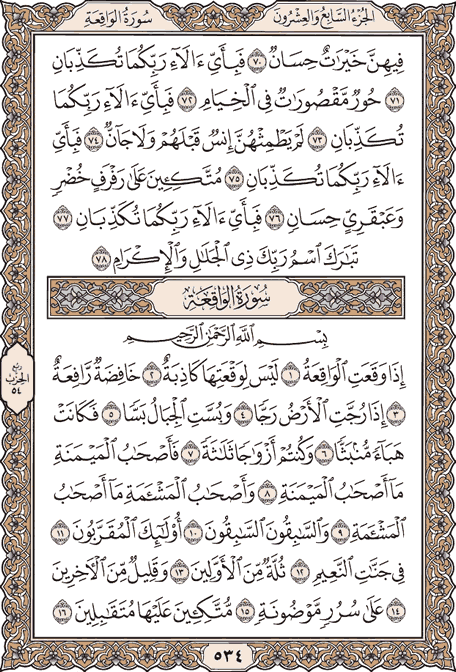 الجزء السابع والعشرون
سورة الواقعة
فِيهِنَّ خَيْرَٰتٌ حِسَانٌ ﴿٧٠﴾ فَبِأَيِّ ءَالَآءِ رَبِّكُمَا تُكَذِّبَانِ
﴿٧١﴾ حُورٌ مَّقْصُورَٰتٌ فِى ٱلْخِيَامِ ﴿٧٢﴾ فَبِأَيِّ ءَالَآءِ رَبِّكُمَا
تُكَذِّبَانِ ﴿٧٣﴾ لَمْ يَطْمِثْهُنَّ إِنسٌ قَبْلَهُمْ وَلَا جَآنٌّ ﴿٧٤﴾ فَبِأَيِّ
ءَالَآءِ رَبِّكُمَا تُكَذِّبَانِ ﴿٧٥﴾ مُتَّكِـِٔينَ عَلَىٰ رَفْرَفٍ خُضْرٍ
وَعَبْقَرِىٍّ حِسَانٍ ﴿٧٦﴾ فَبِأَيِّ ءَالَآءِ رَبِّكُمَا تُكَذِّبَانِ ﴿٧٧﴾
تَبَٰرَكَ ٱسْمُ رَبِّكَ ذِى ٱلْجَلَٰلِ وَٱلْإِكْرَامِ ﴿٧٨﴾
سورة الواقعة
بِسْمِ ٱللَّهِ ٱلرَّحْمَٰنِ ٱلرَّحِيمِ
إِذَا وَقَعَتِ ٱلْوَاقِعَةُ ﴿١﴾ لَيْسَ لِوَقْعَتِهَا كَاذِبَةٌ ﴿٢﴾ خَافِضَةٌ رَّافِعَةٌ
﴿٣﴾ إِذَا رُجَّتِ ٱلْأَرْضُ رَجًّا ﴿٤﴾ وَبُسَّتِ ٱلْجِبَالُ بَسًّا ﴿٥﴾ فَكَانَتْ
هَبَآءً مُّنۢبَثًّا ﴿٦﴾ وَكُنتُمْ أَزْوَٰجًا ثَلَٰثَةً ﴿٧﴾ فَأَصْحَٰبُ ٱلْمَيْمَنَةِ
مَآ أَصْحَٰبُ ٱلْمَيْمَنَةِ ﴿٨﴾ وَأَصْحَٰبُ ٱلْمَشْـَٔمَةِ مَآ أَصْحَٰبُ
ٱلْمَشْـَٔمَةِ ﴿٩﴾ وَٱلسَّٰبِقُونَ ٱلسَّٰبِقُونَ ﴿١٠﴾ أُو۟لَٰٓئِكَ ٱلْمُقَرَّبُونَ ﴿١١﴾
فِى جَنَّٰتِ ٱلنَّعِيمِ ﴿١٢﴾ ثُلَّةٌ مِّنَ ٱلْأَوَّلِينَ ﴿١٣﴾ وَقَلِيلٌ مِّنَ ٱلْـَٔاخِرِينَ
﴿١٤﴾ عَلَىٰ سُرُرٍ مَّوْضُونَةٍ ﴿١٥﴾ مُّتَّكِـِٔينَ عَلَيْهَا مُتَقَٰبِلِينَ ﴿١٦﴾
ربع
الحزب
٥٤
٥٣٤